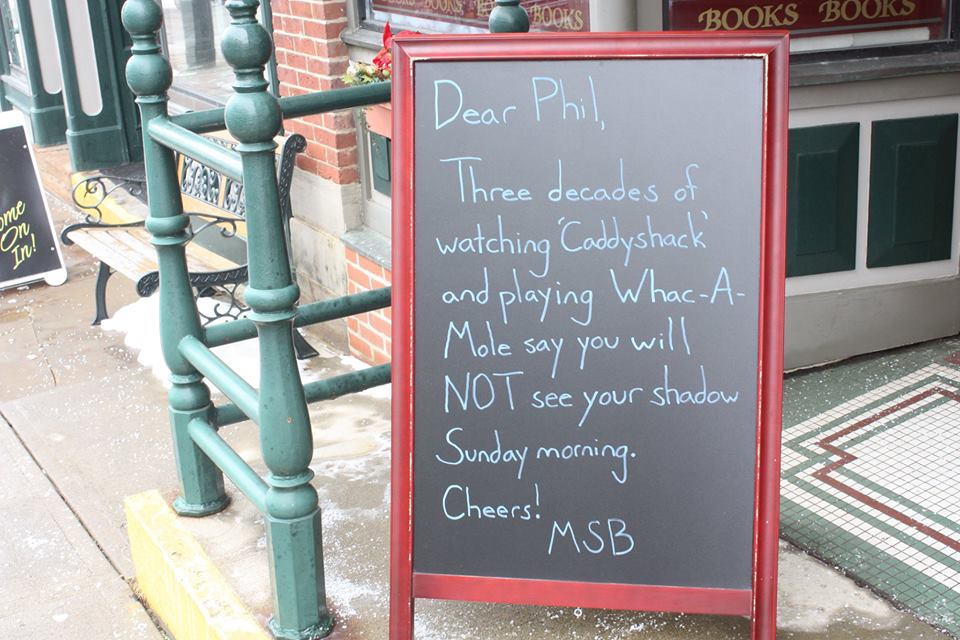 BOOKS BOOKS
BOOKS BOOKS
ome
On
In!
Dear Phil,
Three decades of
watching 'Caddyshack'
and playing Whac-A-
Mole say you will
NOT see your shadow
Sunday morning.
Cheers!
MSB